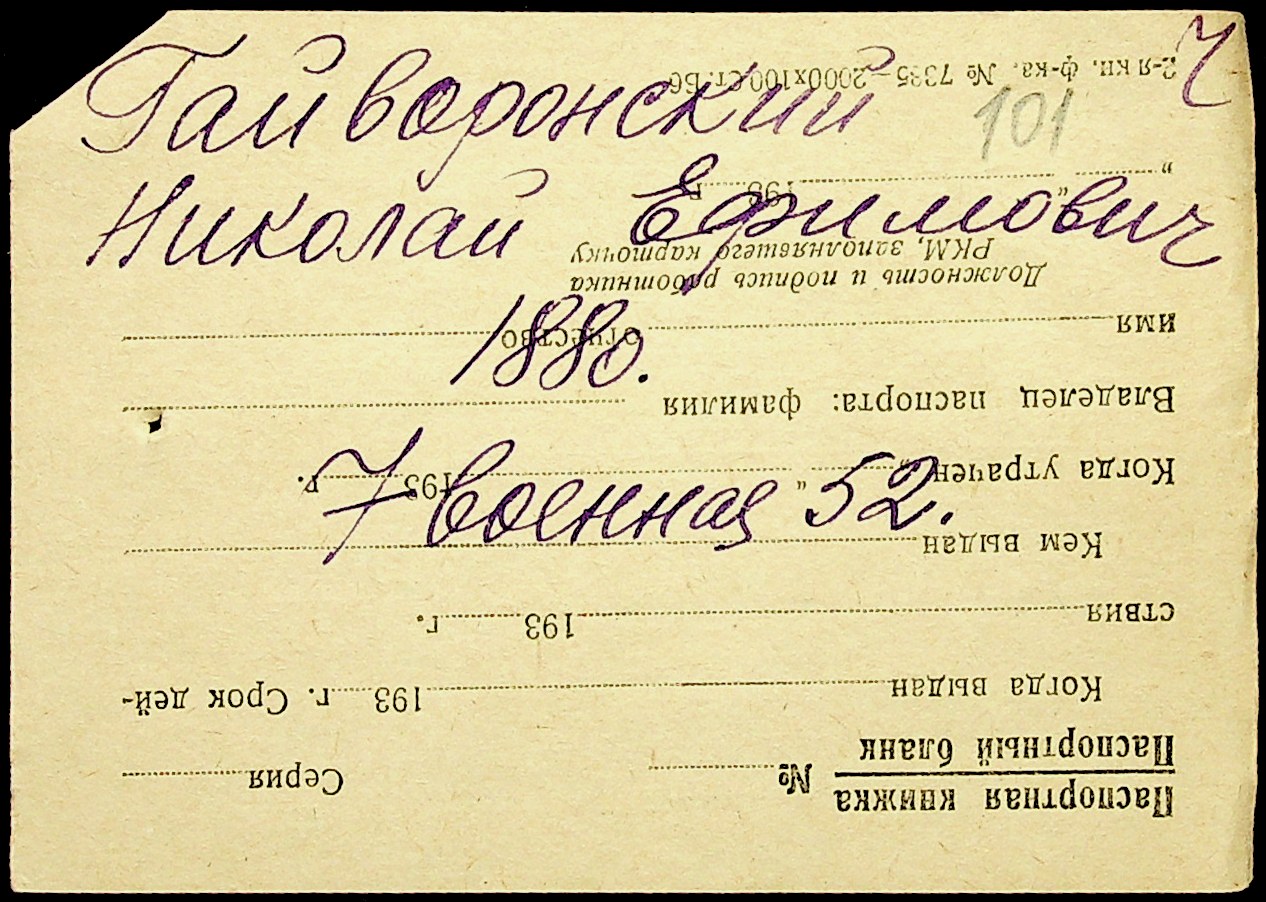 Гайворонский
Ч
101
Николай Ефимович
1880.
7 военная 52.
Паспортная книжка
Паспортный бланк
№ Серия
Когда выдан 193 г. Срок дей-
ствия 193 г.
Кем выдан
Когда утрачен „ “ 193 г.
Владелец паспорта: фамилия
имя отчество
Должность и подпись работника
РКМ, заполнявшего карточку
„ “ 193 г.
2-я кн. ф-ка. № 7335—2000х100 ст. Б6